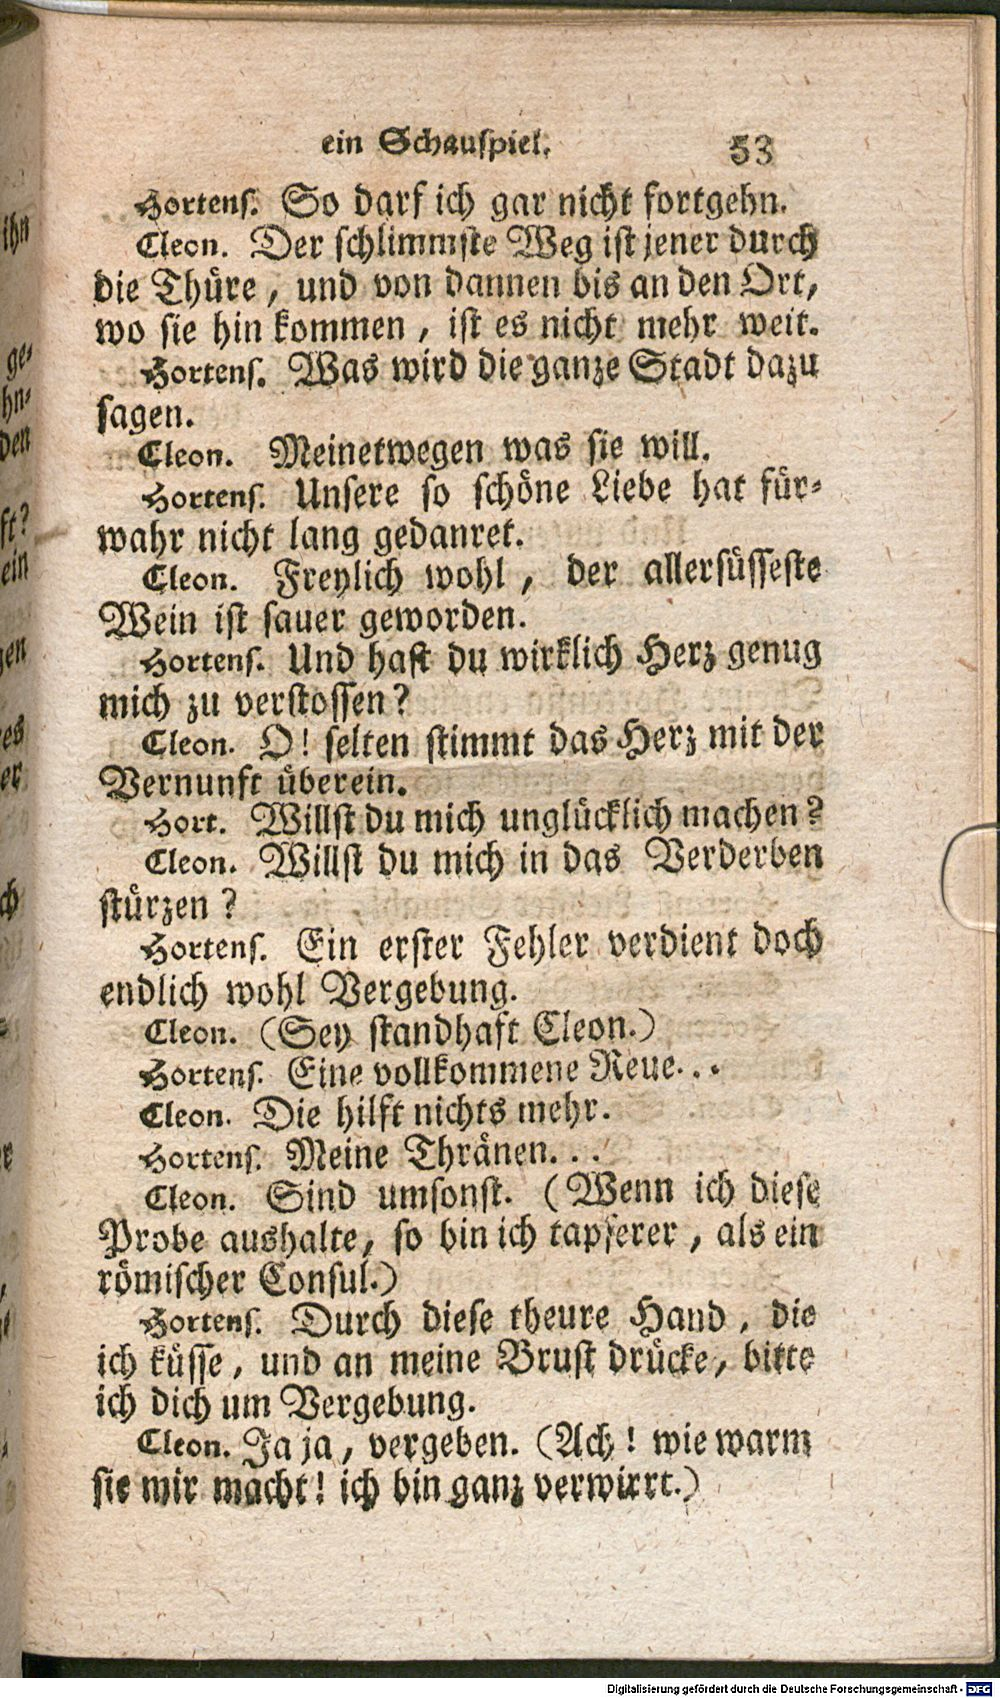 ein Schauspiel. 53
Hortens. So darf ich gar nicht fortgehn.
Cleon. Der schlimmste Weg ist jener durch
die Thüre, und von dannen bis an den Ort,
wo sie hin kommen, ist es nicht mehr weit.
Hortens. Was wird die ganze Stadt dazu
sagen.
Cleon. Meinetwegen was sie will.
Hortens. Unsere so schöne Liebe hat für-
wahr nicht lang gedanret.
Cleon. Freylich wohl, der allersüsseste
Wein ist sauer geworden.
Hortens. Und hast du wirklich Herz genug
mich zu verstossen?
Cleon. O! selten stimmt das Herz mit der
Vernunft überein.
Hort. Willst du mich unglücklich machen?
Cleon. Willst du mich in das Verderben
stürzen?
Hortens. Ein erster Fehler verdient doch
endlich wohl Vergebung.
Cleon. (Sey standhaft Cleon.)
Hortens. Eine vollkommene Reue...
Cleon. Die hilft nichts mehr.
Hortens. Meine Thränen...
Cleon. Sind umsonst. (Wenn ich diese
Probe aushalte, so bin ich tapferer, als ein
römischer Consul.)
Hortens. Durch diese theure Hand, die
ich küsse, und an meine Brust drücke, bitte
ich dich um Vergebung.
Cleon. Ja ja, vergeben. (Ach! wie warm
sie mir macht! ich bin ganz verwirrt.)
Digitalisierung gefördert durch die Deutsche Forschungsgemeinschaft - DFG